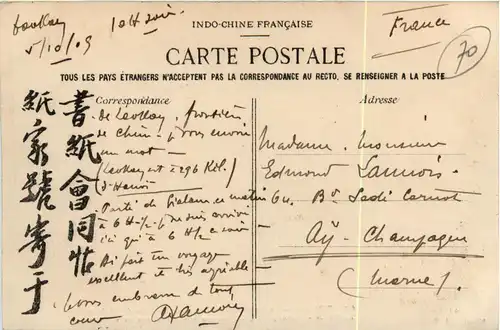 INDO-CHINE FRANÇAISE
CARTE POSTALE
TOUS LES PAYS ÉTRANGERS N'ACCEPTENT PAS LA CORRESPONDANCE AU RECTO, SE RENSEIGNER A LA POSTE
Correspondance
Adresse
France
70
5/10/09
10H soir
書紙會同帖
紙家號寄于
de Laokay, frontière
de Chine, je vous envoie
un mot
(Laokay est à 296 Kil.
d'Hanoi)
Parti de Gialam ce matin
à 6H 1/2 je suis arrivé
ici qu'à 6 H 1/2 ce soir
Ai fait un voyage
excellent et très agréable
Vous embrasse de tout
cœur
Madame. Monsieur
Edmond Lannois
64 Bd Sadi Carnot
Aÿ-Champagne
(Marne).